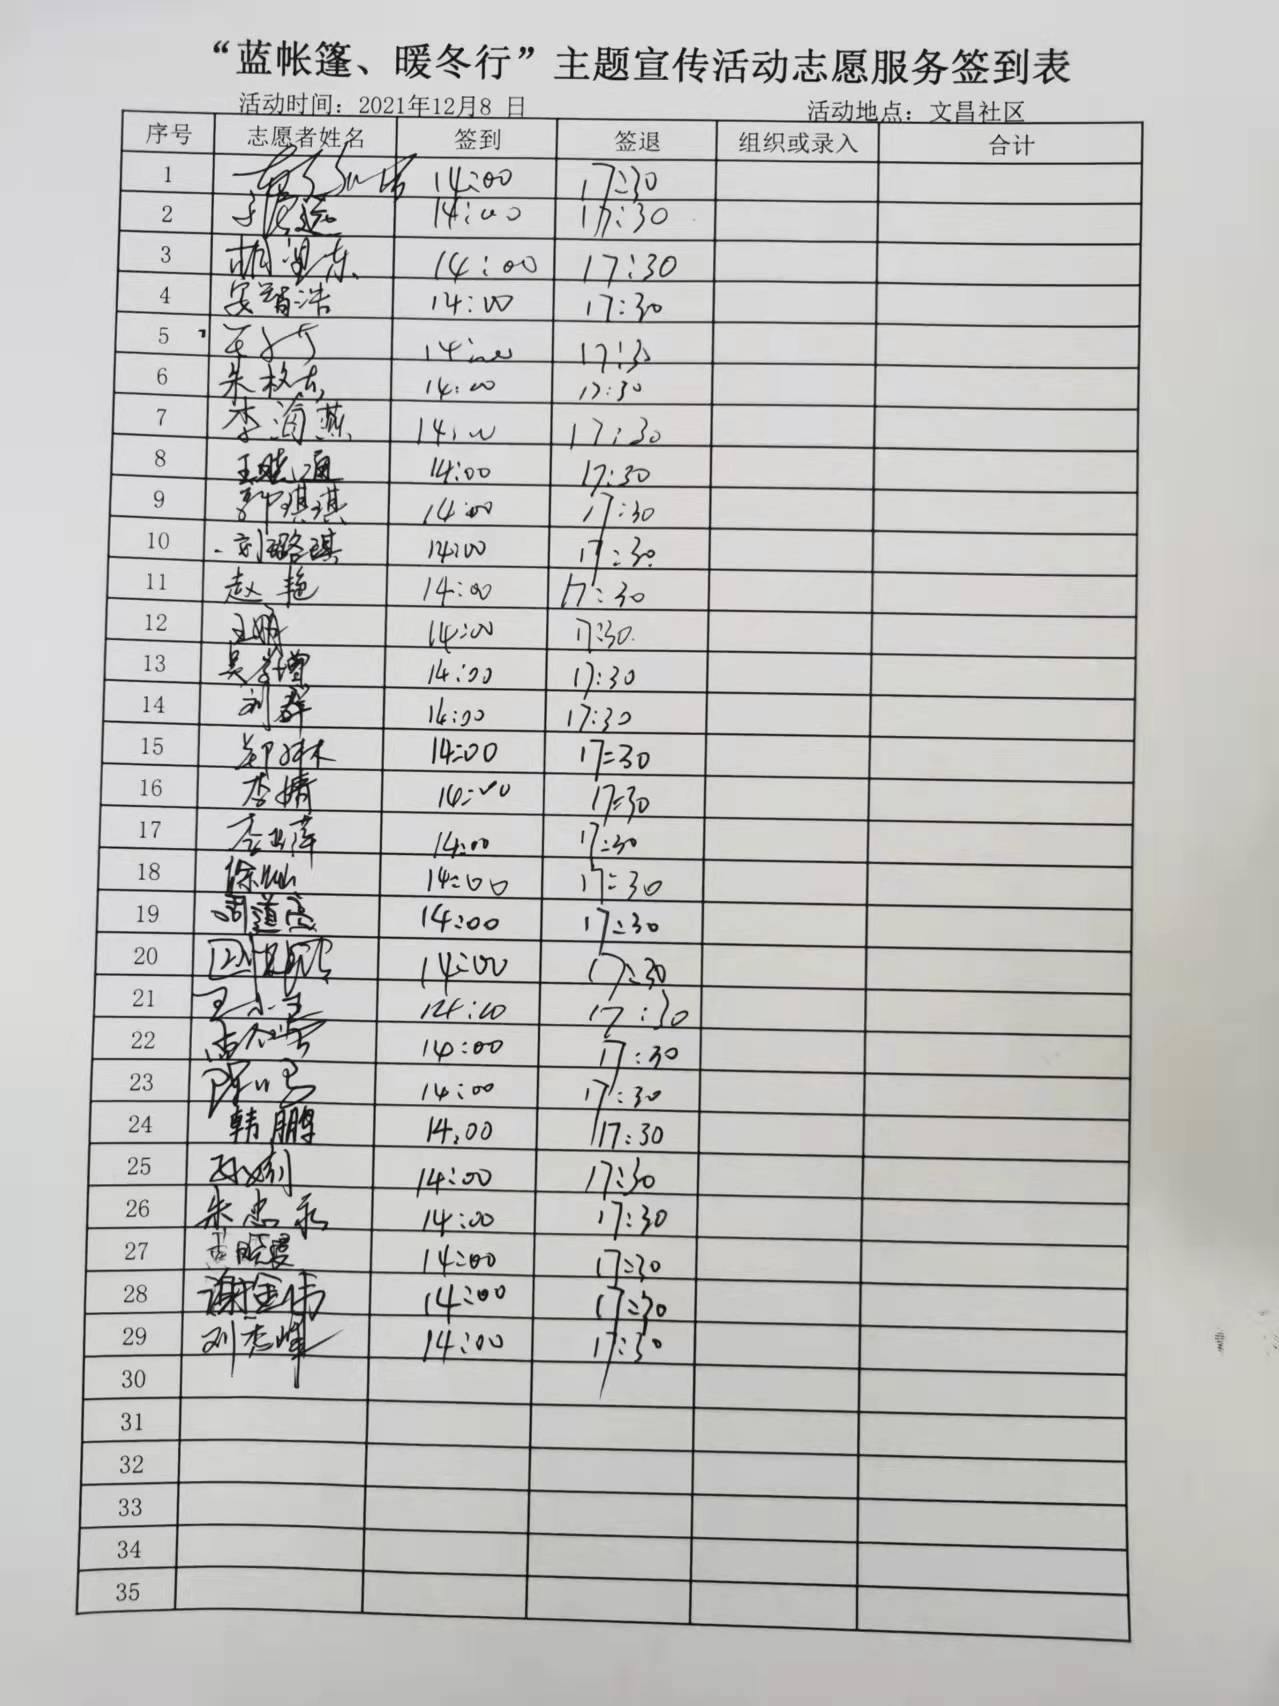 “蓝帐篷、暖冬行”主题宣传活动志愿服务签到表
活动时间：2021年12月8 日 活动地点：文昌社区
序号 志愿者姓名 签到 签退 组织或录入 合计
1 14:00 17:30
2 14:00 17:30
3 14:00 17:30
4 安智浩 14:00 17:30
5 14:00 17:30
6 14:00 17:30
7 李润燕 14:00 17:30
8 王晓通 14:00 17:30
9 郭琪琪 14:00 17:30
10 刘璐琪 14:00 17:30
11 赵艳 14:00 17:30
12 王鹏 14:00 17:30
13 14:00 17:30
14 刘群 14:00 17:30
15 郑琳 14:00 17:30
16 李婧 14:00 17:30
17 14:00 17:30
18 徐灿 14:00 17:30
19 周道亮 14:00 17:30
20 14:00 17:30
21 14:00 17:30
22 14:00 17:30
23 14:00 17:30
24 韩鹏 14:00 17:30
25 14:00 17:30
26 朱忠永 14:00 17:30
27 14:00 17:30
28 谢金伟 14:00 17:30
29 刘志峰 14:00 17:30
30
31
32
33
34
35